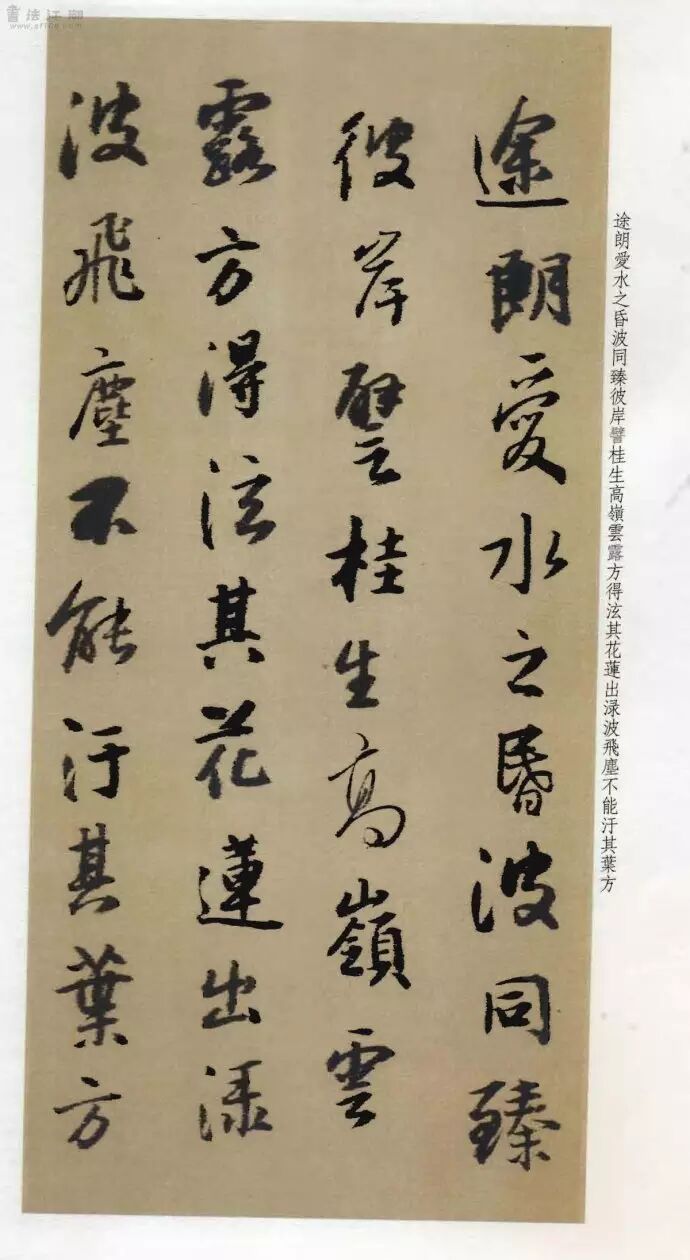 途朗愛水之昏波同臻
彼岸譬桂生高嶺雲
露方得泫其花蓮出渌
波飛塵不能汙其葉方
途朗愛水之昏波同臻彼岸譬桂生高嶺雲露方得泫其花蓮出渌波飛塵不能汙其葉方
書法江湖
www.sf108.com